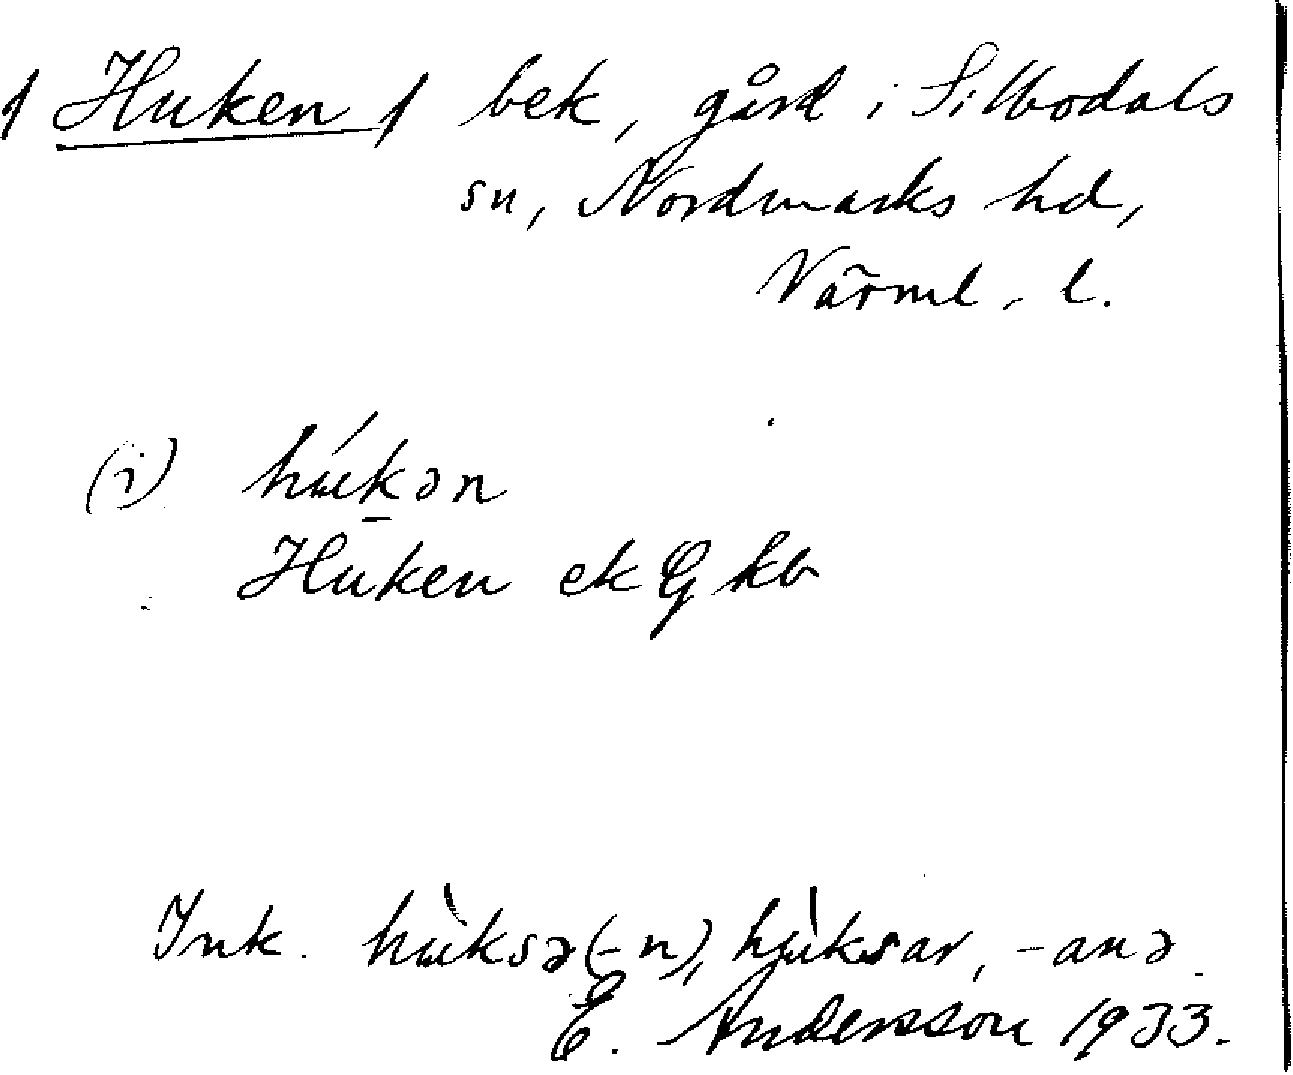 Huken bek, gård i Silbodals
sn, Nordmarks hd,
Värml. l.
(i) hú̵kən
Huken ek G kb
Ink. hù̵ksə(-n), hù̵ksar, -anə
E. Andersson 1933.